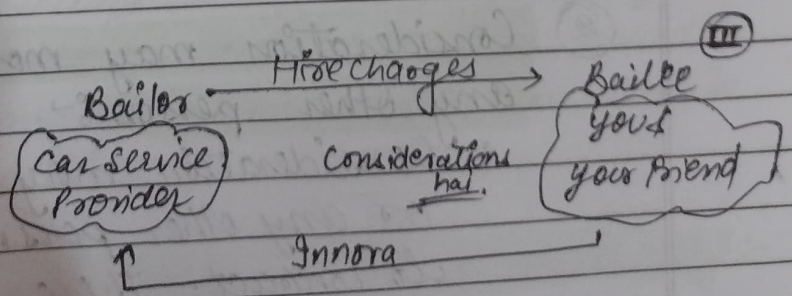 III
Hire charges
Bailor Bailee
Car Service Provider
Considerations hai.
you &
your friend
Innova